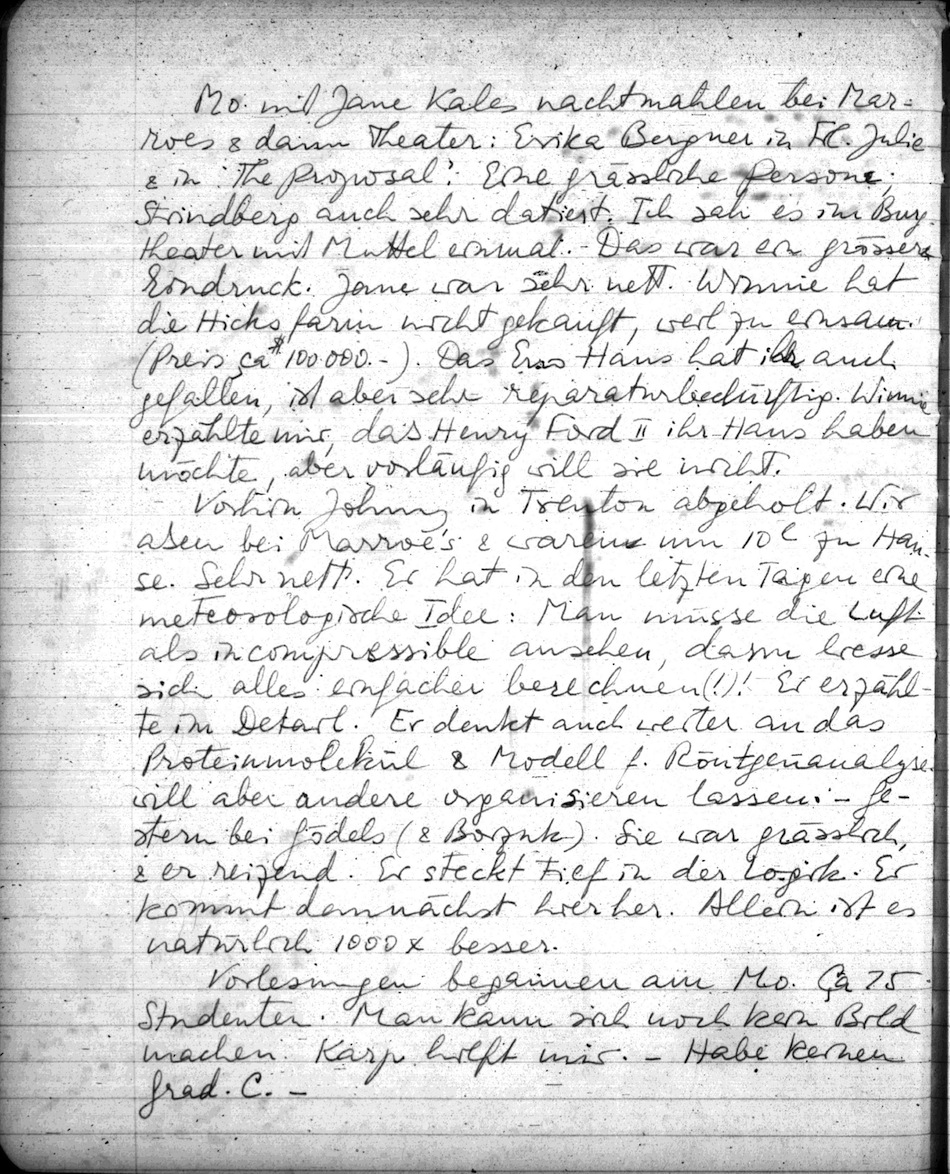 Mo. mit Jane Kales nachtmahlen bei Mar-
roes & dann Theater: Erika Bergner in Frl. Julie
& in 'The Proposal': Eine grässliche Person;
Strindberg auch sehr datiert. Ich sah es im Burg
theater mit Muttel einmal.- Das war ein grösserer
Eindruck. Jane war sehr nett. Winnie hat
die Hicks farm nicht gekauft, weil zu einsam.
(Preis ca $100.000.-). Das Haus hat ihr auch
gefallen, ist aber sehr reparaturbedürftig. Winnie
erzählte mir, das Henry Ford II ihr Haus haben
möchte, aber vorläufig will sie nicht.
Vorhin Johnny in Trenton abgeholt. Wir
assen bei Marroe's & waren um 10h zu Hau-
se. Sehr nett. Er hat in den letzten Tagen eine
meteorologische Idee: Man müsse die Luft
als incompressible ansehen, dann liesse
sich alles einfacher berechnen(!)! Er erzähl-
te im Detail. Er denkt auch weiter an das
Proteinmolekül & Modell f. Röntgenanalyse
will aber andere organisieren lassen.- Ge-
stern bei Gödels (& ). Sie war grässlich,
& er reizend. Er steckt tief in der Logik. Er
kommt demnächst hierher. Allein ist es
natürlich 1000x besser.
Vorlesungen begannen am Mo. Ca 75
Studenten. Man kann sich noch kein Bild
machen. Karp hilft mir. - Habe keinen
Grad. C. -